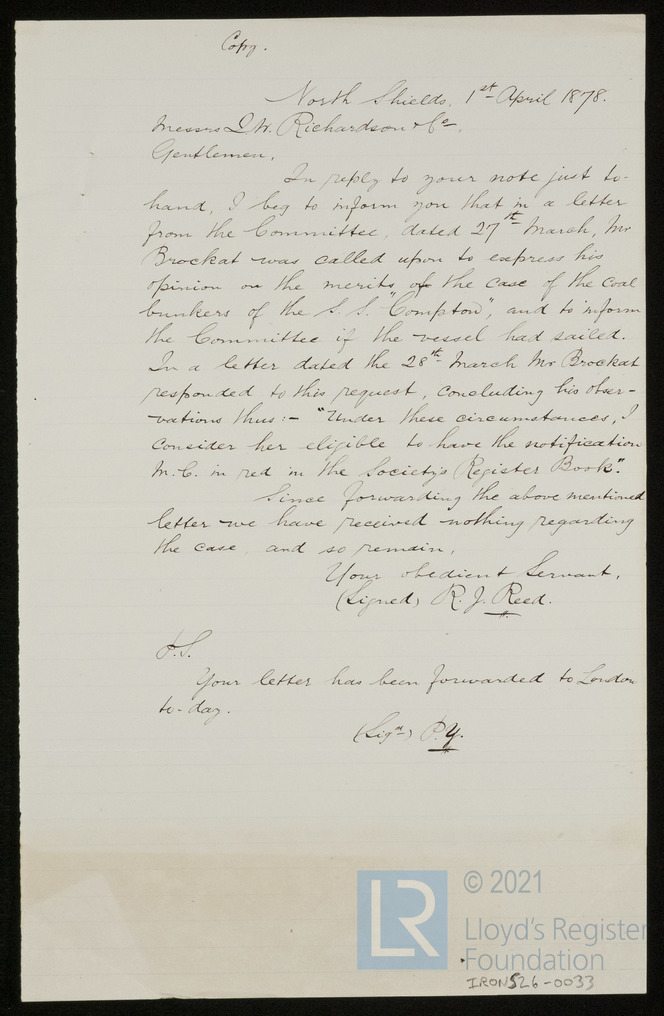 Copy.
North Shields, 1st April 1878.
Messrs J. W. Richardson & Co.
Gentlemen,
In reply to your note just to-
hand, I beg to inform you that in a letter
from the Committee, dated 27th March, Mr
Brockat was called upon to express his
opinion on the merits of the case of the coal
bunkers of the S.S. "Compton", and to inform
the Committee if the vessel had sailed.
In a letter dated the 28th March Mr Brockat
responded to this request, concluding his obser-
vations thus:- "Under these circumstances, I
consider her eligible to have the notification
M.C. in red in the Society's Register Book".
Since forwarding the above mentioned
letter we have received nothing regarding
the case, and so remain,
Your obedient Servant,
(Signed) R. J. Reed.
P.S.
Your letter has been forwarded to London
to-day.
(Sigd) P.Y.
LR
© 2021
Lloyd's Register
Foundation
IRON526-0033